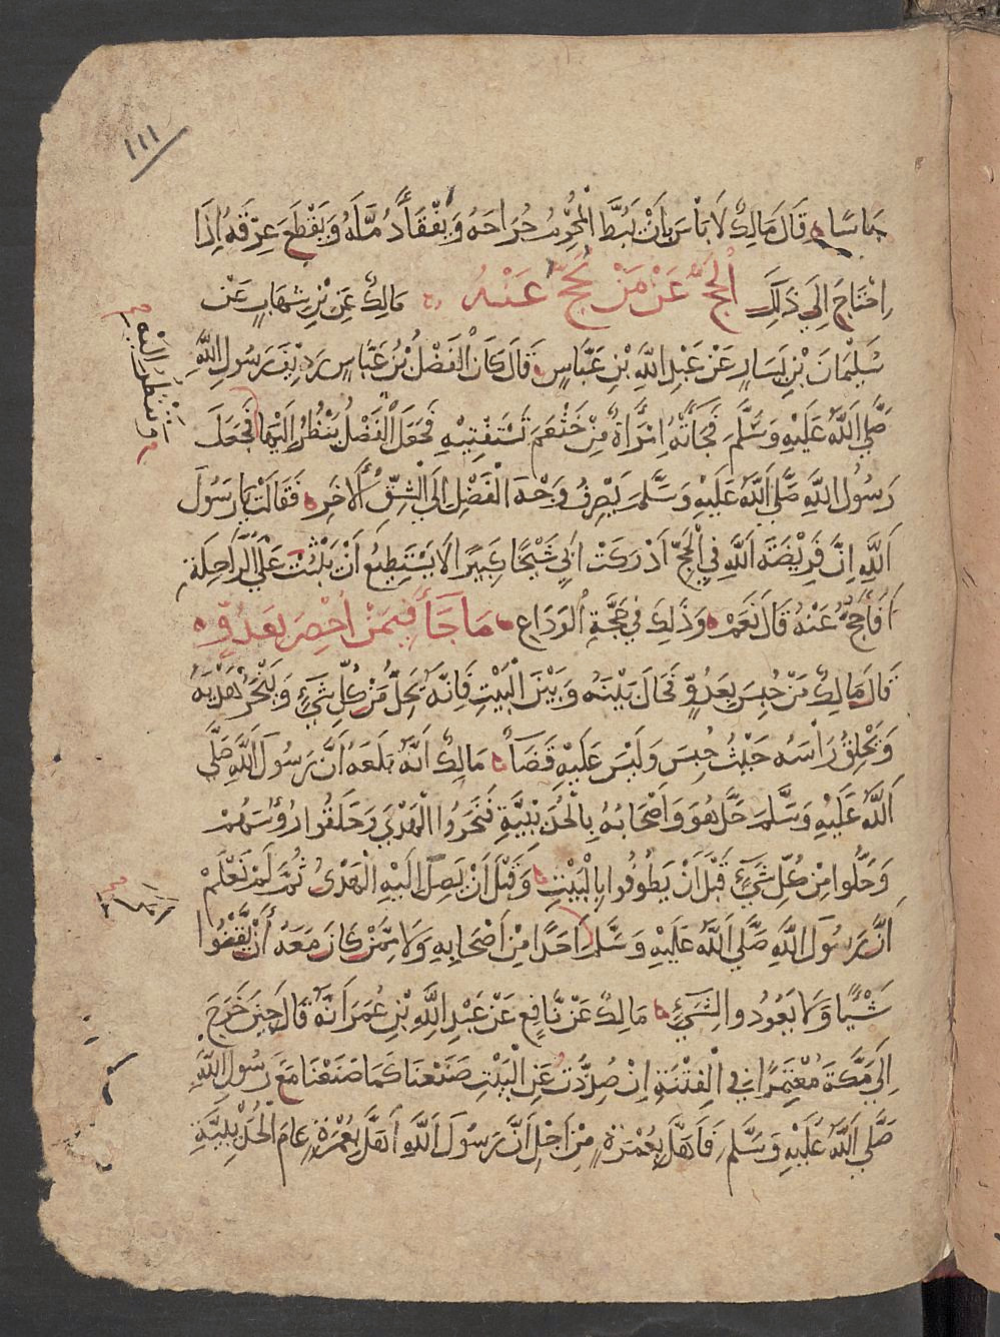 ١١١
بأسًا قَالَ مَالِكٌ لَا بَاْسَ بِاَنْ يَبُطَّ الْمُحْرِمُ جُرَاحَهُ وَيَفْقَأَ دُمَّلَهُ وَيَقْطَعَ عِرْقَهُ اِذَا
اِحْتَاجَ اِلَي ذَلِكَ الْحَجُّ عَنْ مَنْ يُحَجُّ عَنْهُ مَالِكٌ عَنِ بْنِ شِهَابٍ عَنْ
سُلَيْمَانَ بْنِ يَسَارٍ عَنْ عَبْدِ اللَّهِ بْنِ عَبَّاسٍ قَالَ كَانَ الْفَضْلُ بْنُ عَبَّاسٍ رَدِيفَ رَسُولِ اللَّهِ
صَلَّي اللَّهُ عَلَيْهِ وَسَلَّمَ فَجَاَتْهُ امْرَاَةٌ مِنْ خَثْعَمَ تَسْتَفْتِيهِ فَجَعَلَ الْفَضْلُ يَنْظُرُ اِلَيْهَا فَجَعَلَ
وَتَنْظُرُ اِلَيْهِ
رَسُولُ اللَّهِ صَلَّي اللَّهُ عَلَيْهِ وَسَلَّمَ يَصْرِفُ وَجْهَ الْفَضْلِ اِلَي الشِّقِّ الْأَخَرِ فَقَالَتْ يَا رَسُولَ
اللَّهِ اِنَّ فَرِيْضَةَ اللَّهِ فِي الْحَجِّ اَدْرَكَتْ اَبِي شَيْخًا كَبِيرًا لَا يَسْتَطِيعُ اَنْ يَثْبُتَ عَلَي الرَّاحِلَةِ
اَفَاَحُجُّ عَنْهُ قَالَ نَعَمْ وَذَلِكَ فِي حَجَّةِ الْوَدَاعِ مَا جَآَ فِيمَنْ اُحْصِرَ بِعَدُوٍّ
قَالَ مَالِكٌ مَنْ حُبِسَ بِعَدُوٍّ فَحَالَ بَيْنَهُ وَبَيْنَ الْبَيْتِ فَاِنَّهُ يَحِلُّ مِنْ كُلِّ شَيْءٍ وَيَنْحَرُ هَدْيَهُ
وَيَحْلِقُ رَاْسَهُ حَيْثُ حُبِسَ وَلَيْسَ عَلَيْهِ قَضَآءٌ مَالِكٌ اَنَّهُ بَلَغَهُ اَنَّ رَسُولَ اللَّهِ صَلَّي
اللَّهُ عَلَيْهِ وَسَلَّمَ حَلَّ هُوَ وَاَصْحَابُهُ بِالْحُدَيْبِيَّةِ فَنَحَرُوا الْهَدْيَ وَحَلَقُوا رُؤُسَهُمْ
وَحَلُّوا مِنْ كُلِّ شَيْءٍ قَبْلَ اَنْ يَطُوفُوا بِالْبَيْتِ وَقَبْلَ اَنْ يَصِلَ اِلَيْهِ الْهَدْيُ ثُمَّ لَمْ نَعْلَمْ
اَنَّ رَسُولَ اللَّهِ صَلَّي اللَّهُ عَلَيْهِ وَسَلَّمَ اَحَدًا مِنْ اَصْحَابِهِ وَلَا مِمَّنْ كَانَ مَعَهُ اَنْ يَّقْضُوا
اَمَرَ
شَيْئًا وَلَا يَعُودُوا لِشَيْءٍ مَالِكٌ عَنْ نَافِعٍ عَنْ عَبْدِ اللَّهِ بْنِ عُمَرَ اَنَّهُ قَالَ حِينَ خَرَجَ
اِلَي مَكَّةَ مُعْتَمِرًا فِي الْفِتْنَةِ اِنْ صُدِدْتُ عَنِ الْبَيْتِ صَنَعْنَا كَمَا صَنَعْنَا مَعَ رَسُولِ اللَّهِ
صَلَّي اللَّهُ عَلَيْهِ وَسَلَّمَ فَاَهَلَّ بِعُمْرَةٍ مِنْ اَجْلِ اَنَّ رَسُولَ اللَّهِ اَهَلَّ بِعُمْرَةٍ عَامَ الْحُدَيْبِيَّةِ